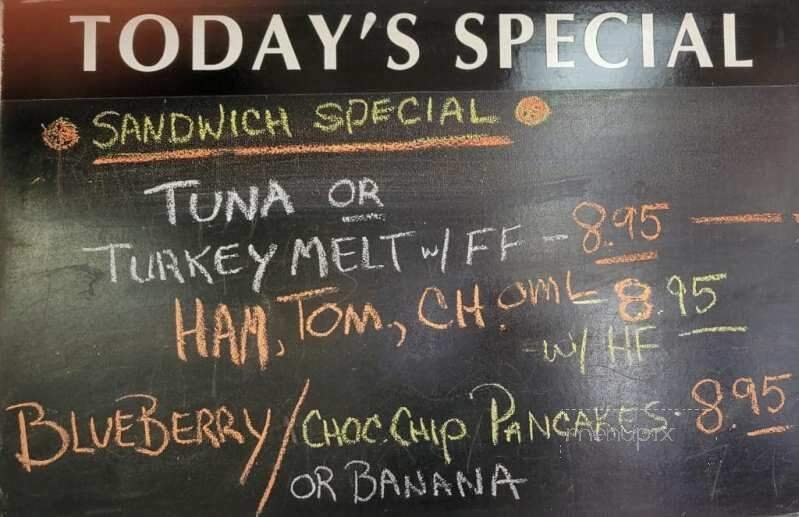 TODAY'S SPECIAL
SANDWICH SPECIAL
TUNA OR
TURKEY MELT w/ FF - 8.95
HAM, TOM., CH. OML 8.95
w/ HF
BLUEBERRY/CHOC. CHIP PANCAKES 8.95
OR BANANA
menupix